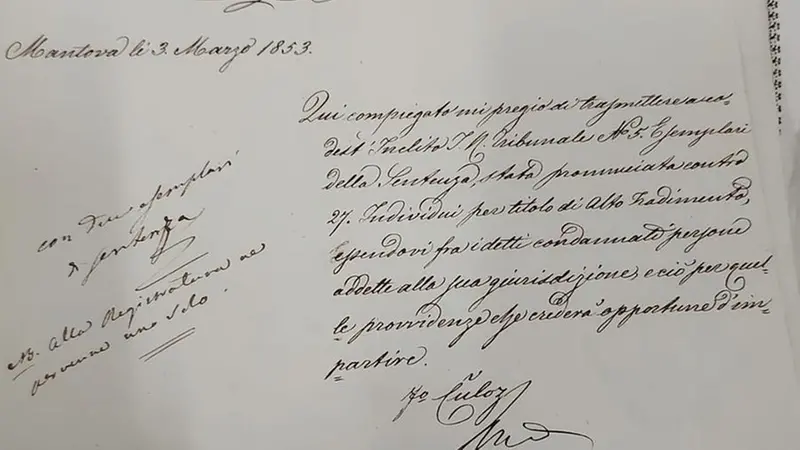 Mantova li 3. Marzo 1853.
Qui compiegato mi pregio di trasmettere a co-
dest' Inclito I. R. Tribunale N.o 5. Esemplari
della Sentenza, stata pronunciata contro
27. Individui per titolo di Alto Tradimento,
essendovi fra i detti condannati persone
addette alla sua giurisdizione, e ciò per quel-
le providenze che crederà opportune d'im-
partire.
Culoz
con due esemplari
di sentenza
NB. Alla Registratura ne
pervenne uno solo.